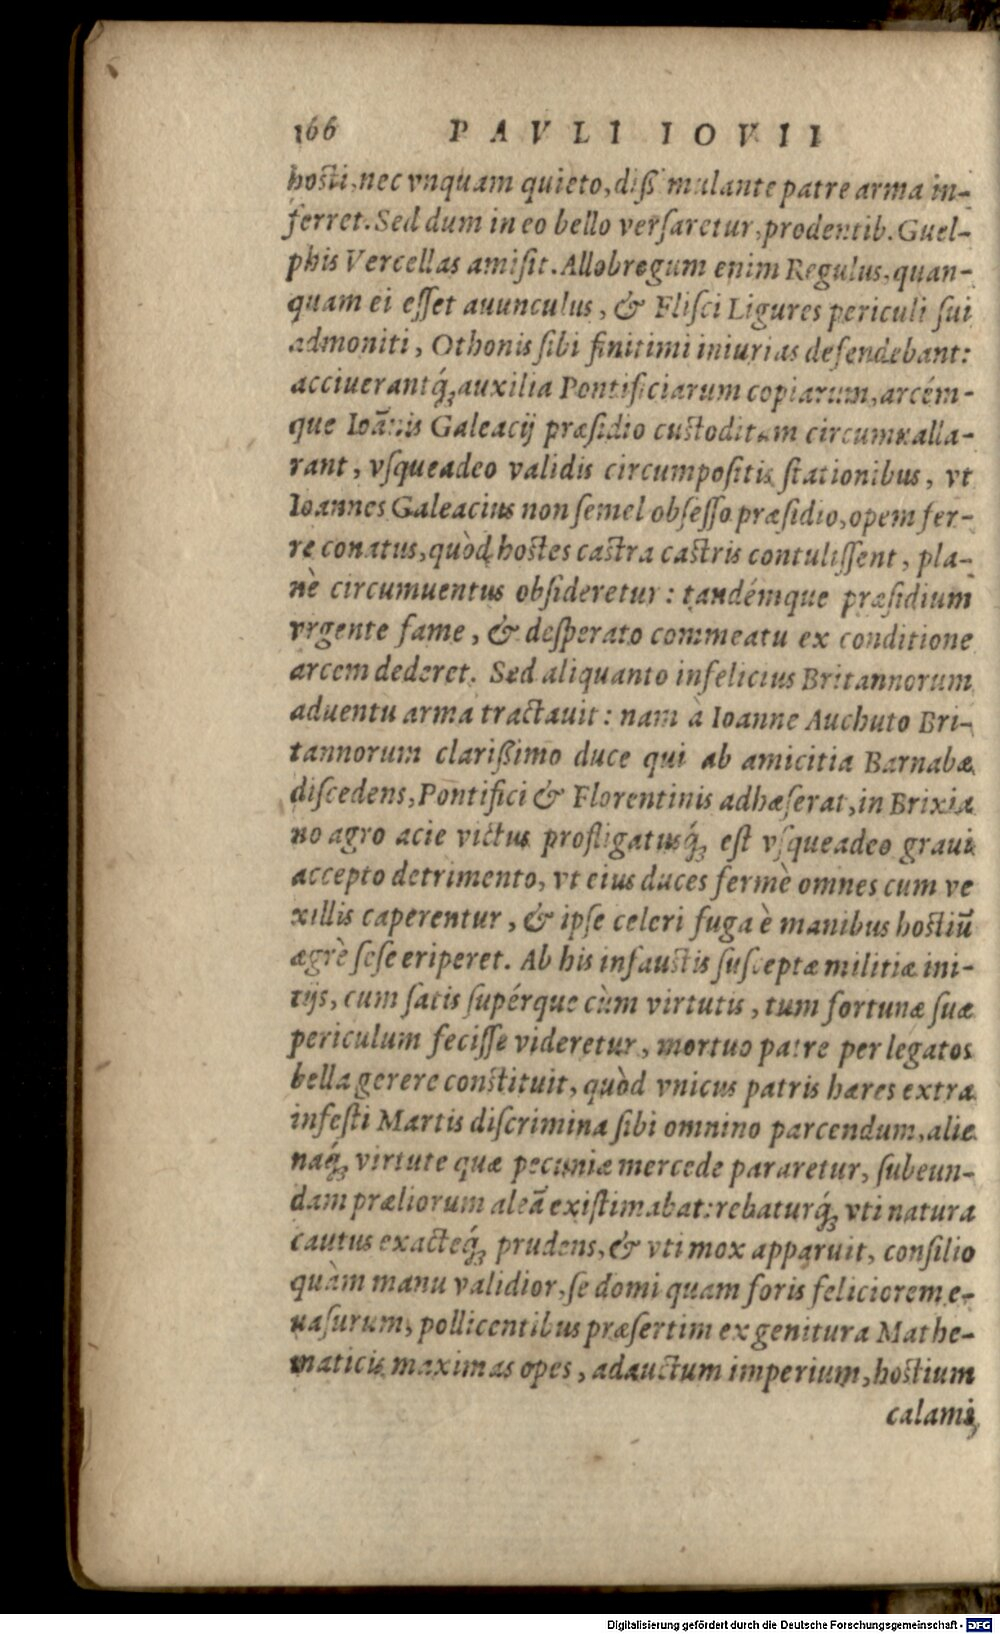 166 PAVLI IOVII
hosti, nec vnquam quieto, dißimulante patre arma in-
ferret. Sed dum in eo bello verſaretur, prodentib. Guel-
phis Vercellas amiſit. Allobregum enim Regulus, quan-
quam ei eſſet auunculus, & Fliſci Ligures periculi ſui
admoniti, Othonis ſibi finitimi iniurias defendebant:
acciuerantq́; auxilia Pontificiarum copiarum, arcém-
que Ioānis Galeacij præſidio custoditam circumualla-
rant, vſqueadeo validis circumpoſitis ſtationibus, vt
Ioannes Galeacius non ſemel obſeſſo præſidio, opem fer-
re conatus, quòd hostes castra castris contuliſſent, pla-
nè circumuentus obſideretur: tandémque præſidium
vrgente fame, & deſperato commeatu ex conditione
arcem dederet. Sed aliquanto infelicius Britannorum
aduentu arma tractauit: nam à Ioanne Auchuto Bri-
tannorum clarißimo duce qui ab amicitia Barnabæ
diſcedens, Pontifici & Florentinis adhæſerat, in Brixia
no agro acie victus profligatusq́; eſt vſqueadeo graui
accepto detrimento, vt eius duces fermè omnes cum ve
xillis caperentur, & ipſe celeri fuga è manibus hostiū
ægrè ſeſe eriperet. Ab his infaustis ſuſceptæ militiæ ini-
tijs, cum ſatis ſupérque cùm virtutis, tum fortunæ ſuæ
periculum feciſſe videretur, mortuo patre per legatos
bella gerere constituit, quòd vnicus patris hæres extra
infeſti Martis diſcrimina ſibi omnino parcendum, alie
naq́; virtute quæ pecuniæ mercede pararetur, ſubeun-
dam præliorum aleā exiſtimabat: rebaturq́; vti natura
cautus exacteq́; prudens, & vti mox apparuit, conſilio
quàm manu validior, ſe domi quam foris feliciorem e-
uaſurum, pollicentibus præſertim ex genitura Mathe-
maticis maximas opes, adauctum imperium, hostium
calami,
Digitalisierung gefördert durch die Deutsche Forschungsgemeinschaft - DFG